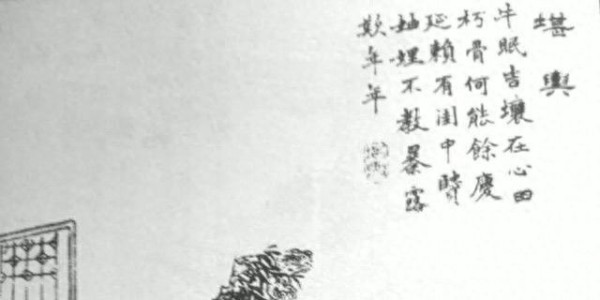 堪輿
牛眠吉壤在心田
朽骨何能餘慶
延賴有閨中賢
妯娌不教暴露
歎年年